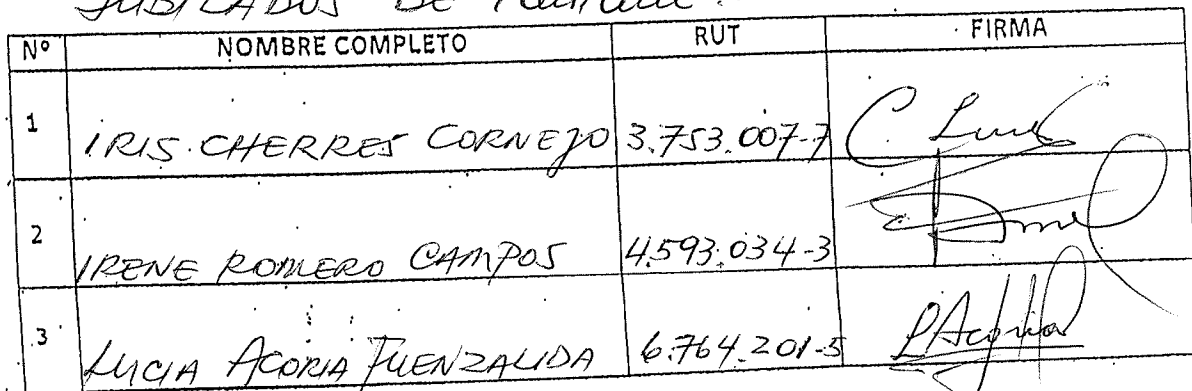 JUBILADOS DE
Nº NOMBRE COMPLETO RUT FIRMA
1 IRIS CHERRES CORNEJO 3.753.007-7
2 IRENE ROMERO CAMPOS 4.593.034-3
3 LUCIA ACORIA FUENZALIDA 6.764.201-5